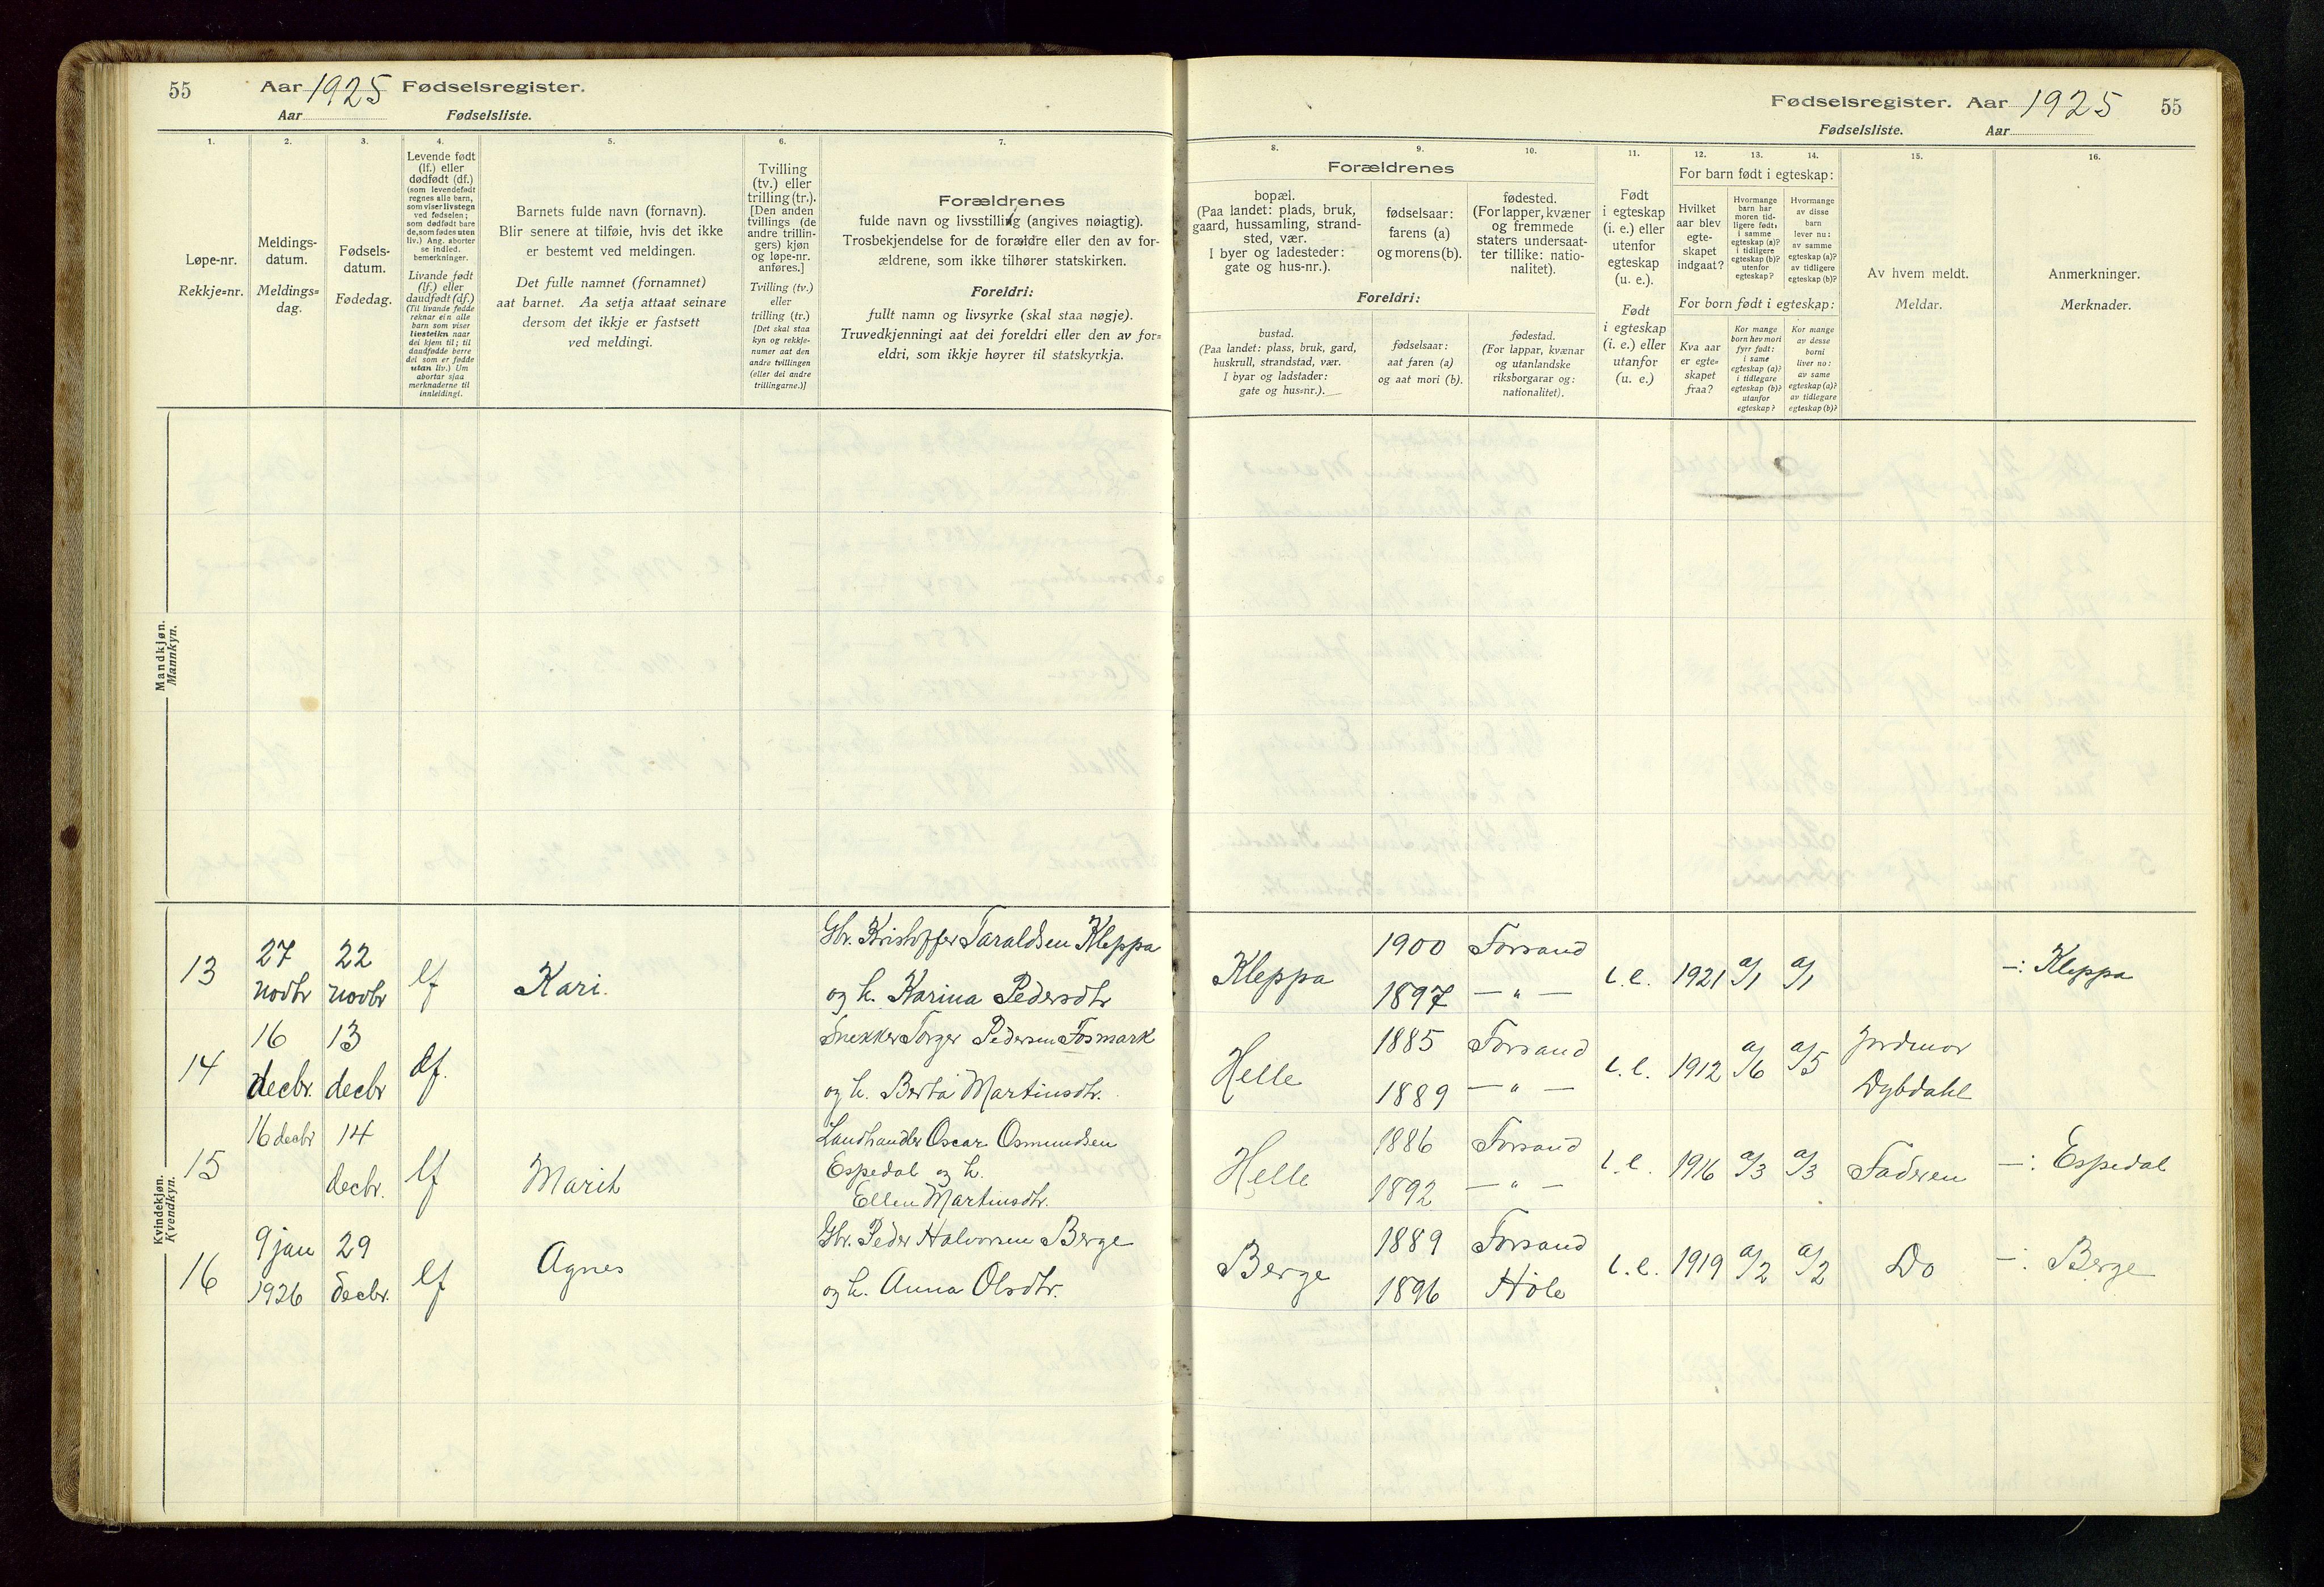 55 Aar 1925 Fødselsregister.
Aar Fødselsliste.
1. 2. 3. 4. 5. 6. 7.
Løpe-nr.
Rekkje=nr.
Meldings-
datum.
Meldings=
dag.
Fødsels-
datum.
Fødedag.
Levende født
(lf.) eller
dødfødt (df.)
(som levendefødt
regnes alle barn,
som viser livstegn
ved fødselen;
som dødfødt bare
de, som fødes uten
liv.) Ang. aborter
se indled.
bemerkninger.
Livande født
(lf.) eller
daudfødt (df.)
(Til livande fødde
reknar ein alle
barn som viser
livsteikn naar
dei kjem til; til
daudfødde berre
dei som er fødde
utan liv.) Um
abortar sjaa
merknaderne til
innleidingi.
Barnets fulde navn (fornavn).
Blir senere at tilføie, hvis det ikke
er bestemt ved meldingen.
Det fulle namnet (fornamnet)
aat barnet. Aa setja attaat seinare
dersom det ikkje er fastsett
ved meldingi.
Tvilling
(tv.) eller
trilling (tr.).
[Den anden
tvillings (de
andre trillin-
gers) kjøn
og løpe-nr.
anføres.]
Tvilling (tv.)
eller
trilling (tr.)
[Det skal staa
kyn og rekkje-
numer aat den
andre tvillingen
(eller dei andre
trillingarne.)]
Forældrenes
fulde navn og livsstilling (angives nøiagtig).
Trosbekjendelse for de forældre eller den av for-
ældrene, som ikke tilhører statskirken.
Foreldri:
fullt namn og livsyrke (skal staa nøgje).
Truvedkjenningi aat dei foreldri eller den av for-
eldri, som ikkje høyrer til statskyrkja.
Mandkjøn.
Mannkyn.
Kvindekjøn.
Kvendkyn.
13 27 novbr 22 novbr lf Kari.
Gbr. Kristoffer Taraldsen Kleppa
og h. Karina Pedersdtr
14 16 decbr. 13 decbr df.
Snekker Torger Pedersen Fosmark
og h. Berta Martinsdtr.
15 16 decbr 14 decbr. lf Marit
Landhandler Oscar Osmundsen
Espedal og h.
Ellen Martinsdtr.
16 9 jan 1926 29 decbr. lf Agnes
Gbr. Peder Halvorsen Berge
og h. Anna Olsdtr.
Fødselsregister. Aar 1925 55
Fødselsliste. Aar
8. 9. 10. 11. 12. 13. 14. 15. 16.
Forældrenes
bopæl.
(Paa landet: plads, bruk,
gaard, hussamling, strand-
sted, vær.
I byer og ladesteder:
gate og hus-nr.).
fødselsaar:
farens (a)
og morens (b).
fødested.
(For lapper, kvæner
og fremmede
staters undersaat-
ter tillike: natio-
nalitet).
Foreldri:
bustad.
(Paa landet: plass, bruk, gard,
huskrull, strandstad, vær.
I byar og ladstader:
gate og hus=nr.).
fødselsaar:
aat faren (a)
og aat mori (b).
fødestad.
(For lappar, kvænar
og utanlandske
riksborgarar og:
nationalitet).
Født
i egteskap
(i. e.) eller
utenfor
egteskap
(u. e.).
Født
i egteskap
(i. e.) eller
utanfor
(u. e.)
For barn født i egteskap:
Hvilket
aar blev
egte-
skapet
indgaat?
Hvormange
barn har
moren tid-
ligere født:
i samme
egteskap (a)?
i tidligere
egteskap (b)?
utenfor
egteskap?
Hvormange
av disse
barn
lever nu:
av samme
egteskap (a)?
av tidligere
egteskap (b)?
For born født i egteskap:
Kva aar
er egte=
skapet
fraa?
Kor mange
born hev mori
fyrr født:
i same
egteskap (a)?
i tidlegare
egteskap (b)?
utanfor
egteskap?
Kor mange
av desse
borni
liver no:
av same
egteskap (a)?
av tidlegare
egteskap (b)?
Av hvem meldt.
Meldar.
Anmerkninger.
Merknader.
Kleppa 1900 Forsand i. e. 1921 a/1 a/1 —: Kleppa
1897 — " —
Helle 1885 Forsand i. e. 1912 a/6 a/5 Jordmor
1889 — " — Dybdahl
Helle 1886 Forsand i. e. 1916 a/3 a/3 Faderen —: Espedal
1892 — " —
Berge 1889 Forsand i. e. 1919 a/2 a/2 Do —: Berge
1896 Høle